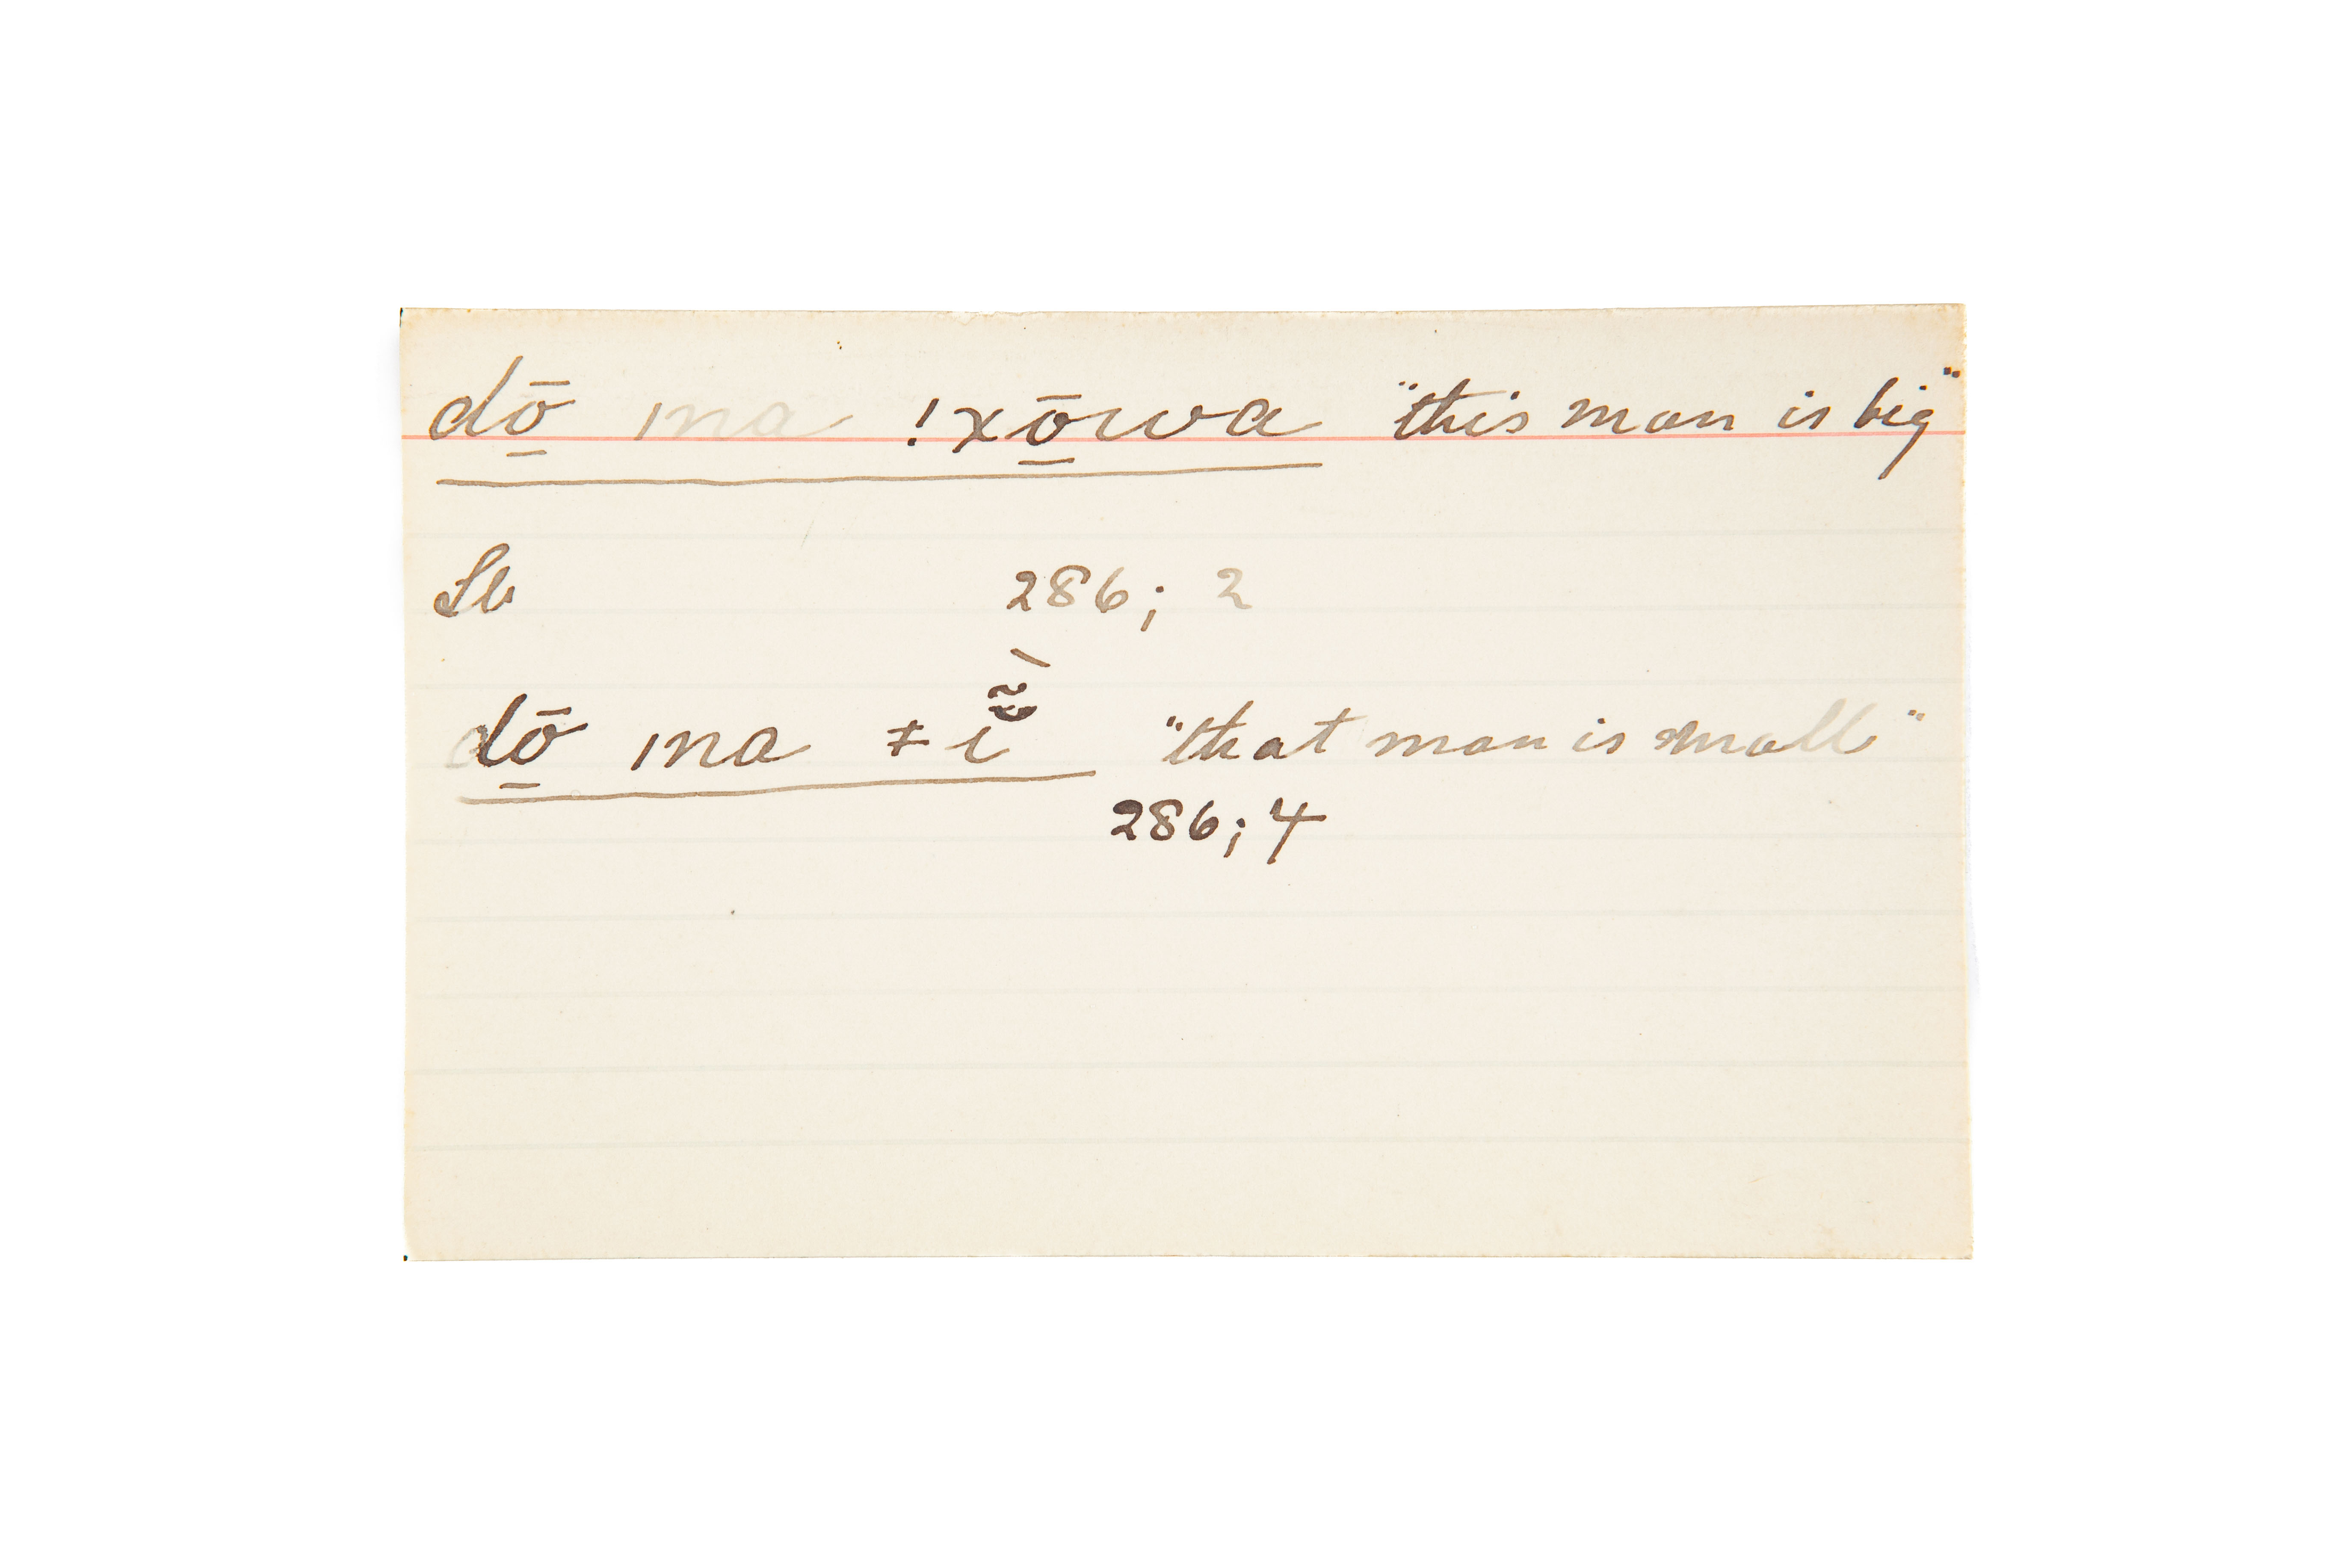 dō̠ ɪna !xō̠wa "this man is big"
Sb 286; 2
dō̠ ɪna ǂĩ̀ "that man is small"
286; 4